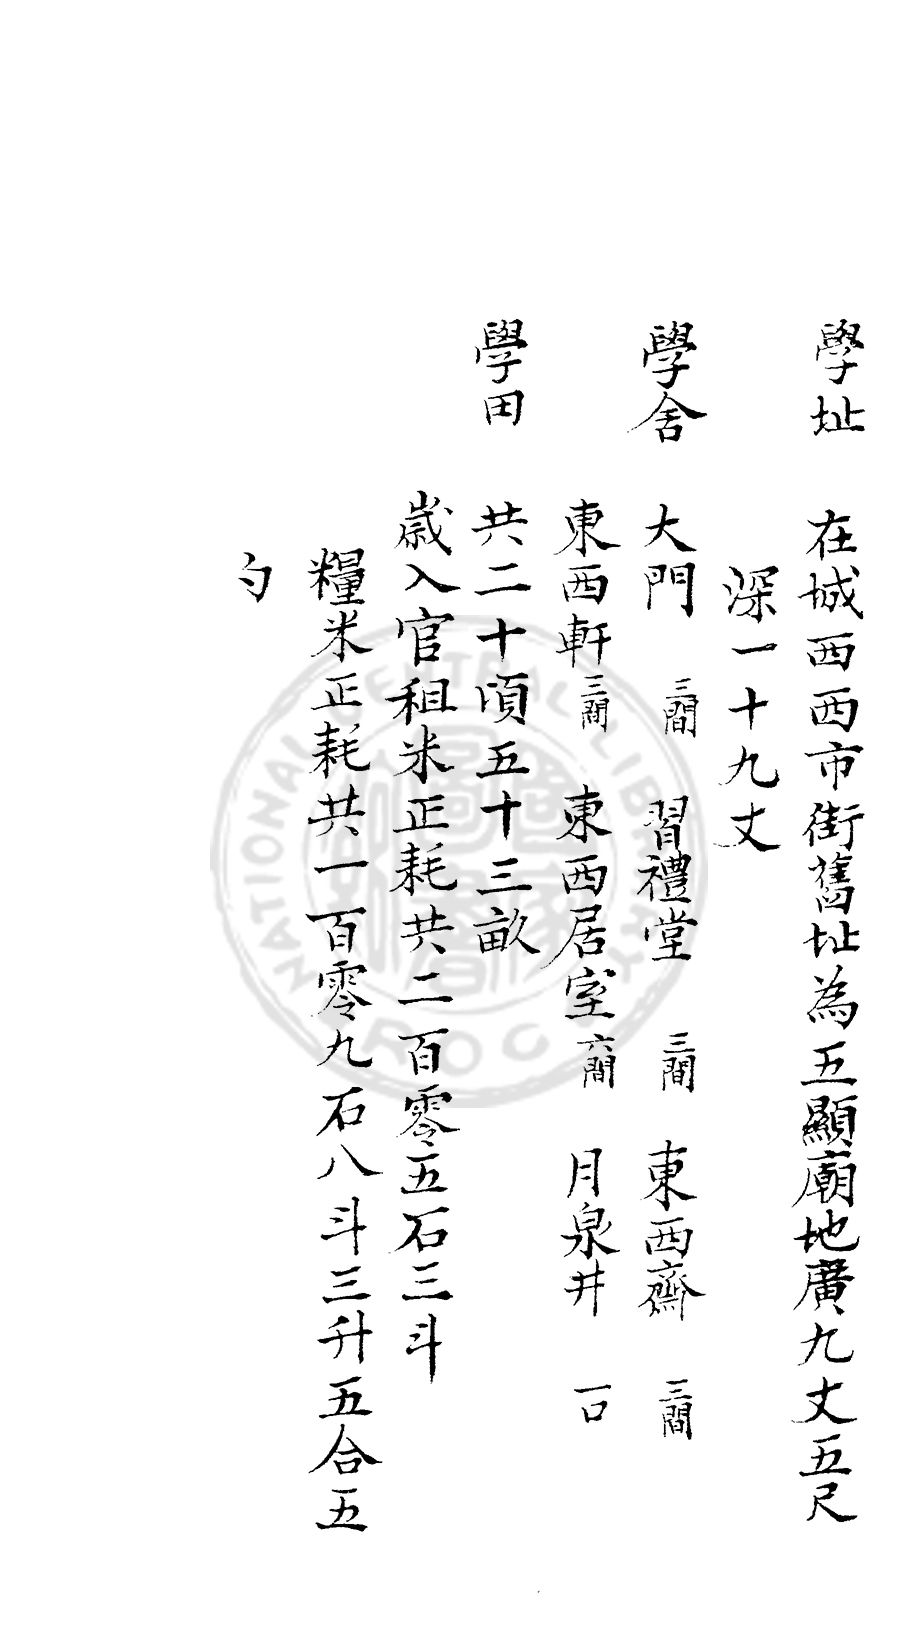 學址　在城西西市街舊址為五顯廟地廣九丈五尺
深一十九丈
學舍　大門　三間　習禮堂　三間　東西齋　三間
東西軒三間　東西居室六間　月泉井　一口
學田　共二十頃五十三畝
歲入官租米正耗共二百零五石三斗
糧米正耗共一百零九石八斗三升五合五
勺
NATIONAL CENTRAL LIBRARY